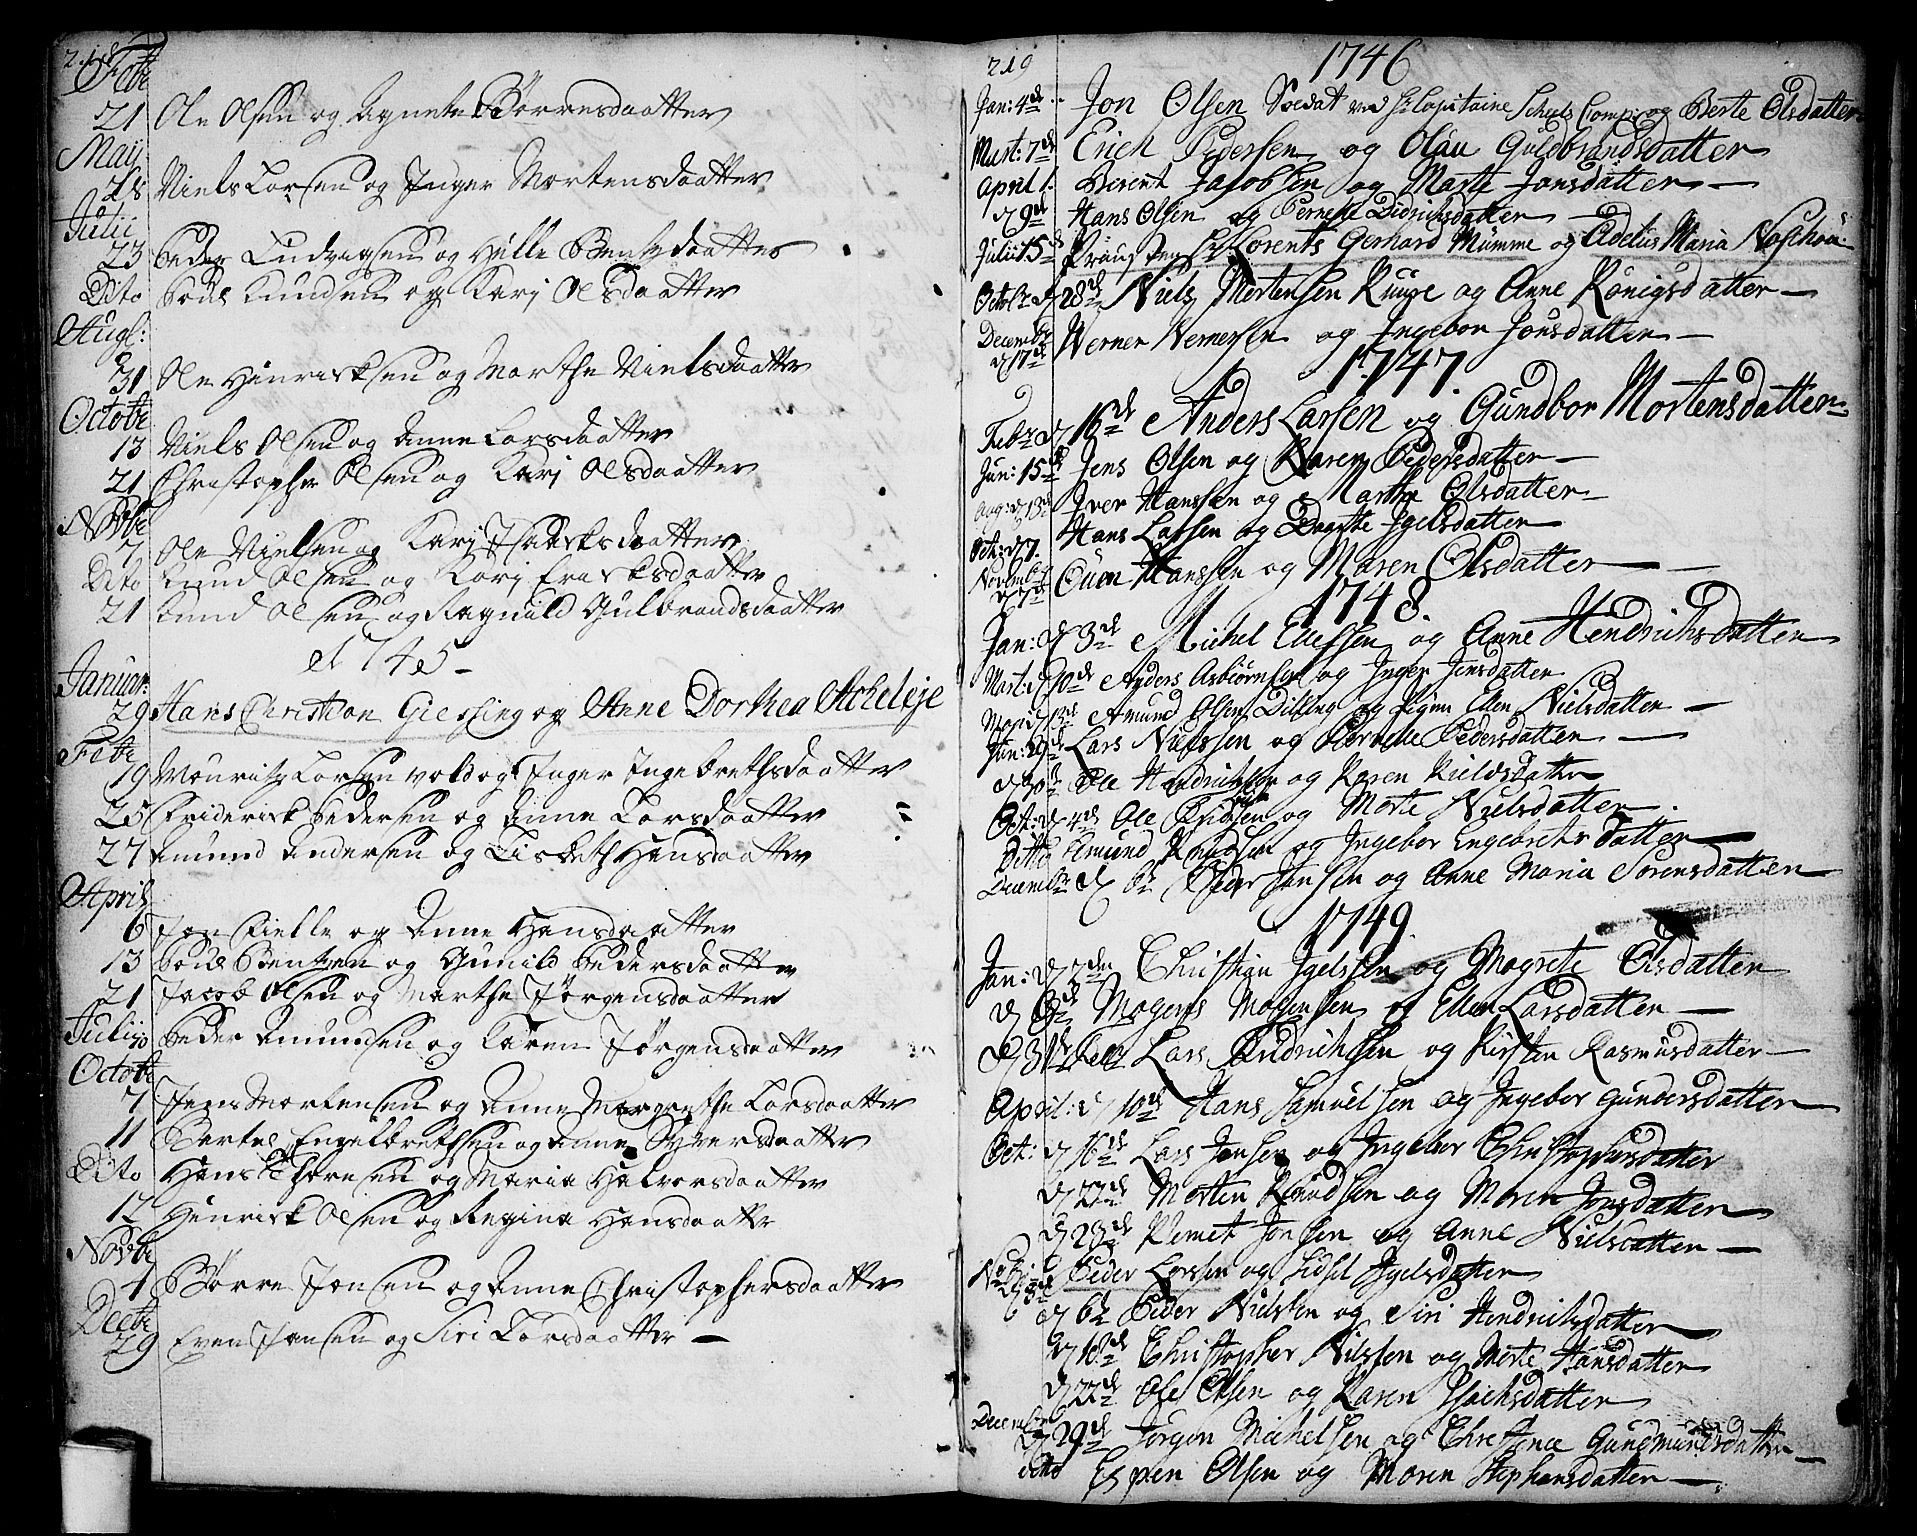 218
Febr
21 Ole Olsen og Agnete Børresdaatter
Maij
28 Niels Larsen og Inger Mortensdaatter
Julii
23 Peder Ludvigsen og Hille Bentzdaatter
Dito Povel Knudsen og Kari Olsdaatter
Augl:
31 Ole Hinricksen og Marthe Nielsdaatter
Octobr
13 Niels Olsen og Anne Larsdaatter
21 Christopher Olsen og Kari Olsdaatter
Novbr
7 Ole Nielsen og Kari Isaacksdaatter
Dito Knud Olsen og Kari Erichsdaatter
21 Knud Olsen og Ragnild Gulbrandsdaatter
A 1745
Januar:
29 Hans Christian Giessing og Anne Dorthea Acheleje
Febr
19 Mouritz Larsen Vold og Inger Ingebrethsdaatter
25 Friderick Pedersen og Anne Larsdaatter
27 Amund Andersen og Lisbeth Hansdaatter
April
6 Jon Kielle og Anne Hansdaatter
13 Povel Bentzen og Gunild Pedersdaatter
21 Jacob Olsen og Marthe Jørgensdaatter
Julii
10 Peder Amundsen og Karen Jørgensdaatter
Octobr
7 Jens Mortensen og Anne Margrethe Larsdaatter
11 Bertel Engelbrethsen og Anne Syversdaatter
Dito Hans Thoresen og Maria Halvorsdaatter
12 Hinrick Olsen og Regina Hansdaatter
Novbr
4 Børre Jonsen og Anne Christophersdaatter
Decbr
29 Even Jansen og Siri Larsdaatter
219
1746
Jan: 4de Jon Olsen Soldat ved Hr Capitaine Scheels Comp: og Berte Olsdatter
Mart: 7de Erich Pedersen og Olau Guldbrandsdatter
April 1. Berent Jacobsen og Marte Jonsdatter
d 9de Hans Olsen og Pernelle Didrichsdatter
Julii 15de Hr Lorents Gerhard Mumme og Adelus Maria
Octobr d 28de Niels Mortensen Ruuge og Anne Königsdatter
Decembr d 17de Werner Nemersen og Ingebor Jonsdatter
1747.
Febr d 16de Anders Larsen og Gundbor Mortensdatter
Jun: 15de Jens Olsen og Karen Pedersdatter
Aug: d 13de Iver Hanssen og Marthe Olsdatter
Oct: d 7. Hans Larsen og Dorothe Igelsdatter
Novembr d 7de Ouen Hanssen og Maren Olsdatter
1748.
Jan: d 3de Michel Ellefsen og Anne Hendrichsdatter
Mart: d 10de Anders Asbiørnsen og Inger Jensdatter
Maji d 13de Amund Olsen Dilling og Pigen Ellen Nielsdatter
Jun: 29de Lars Nielssen og Pernelle Pedersdatter
d 30te Ole Hendrichsen og Karen Kieldsdatter
Oct: d 4de Ole Erichsen og Marte Nielsdatter
Ditto Amund Knudsen og Ingebor Engebrechtsdatter
Decembr d 6te Peder Jansen og Anne Maria Sørensdatter
1749.
Jan: d 2den Christian Igelssen og Magrete Olsdatter
d 8de Mogens Mogensen og Ellen Larsdatter
d 31te Lars Didrichssen og Kirsten Rasmusdatter
April: d 10de Hans Samuelsen og Ingebor Gundersdatter
Oct: d 16de Lars Jensen og Ingebor Christophersdatter
d 22de Morten Knudsen og Maren Jonsdatter
d 23de Remet Jonsen og Anne Nielsdatter
Nobr: d 3de Peder Larsen og Sidsel Igelsdatter
d 6te Peder Nielsen og Siri Hendrichsdatter
d 18de Christopher Nilsen og Marte Hansdatter
d 22de Ole Olsen og Karen Isachsdatter
Decembr d 29de Jørgen Michelsen og Christence Gundmundsdatter
dito Espen Olsen og Maren Stephensdatter